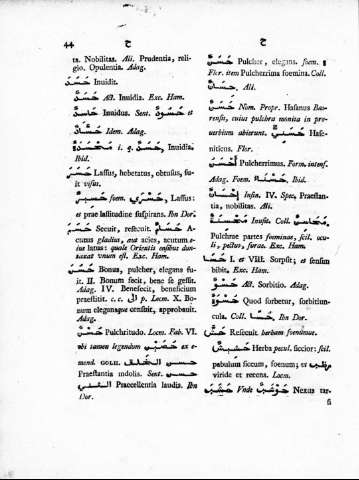 44 ح ح
ta. Nobilitas. Ali. Prudentia, reli-
gio. Opulentia. Adag.
حَسَدَ Inuidit.
حَسَدٌ Act. Inuidia. Exc. Ham.
حَاسِدٌ Inuidus. حَسُودٌ et Sent.
حَسَّادٌ Idem. Adag.
مَحْسَدَةٌ i. q. حَسَدٌ, Inuidia.
Ibid.
حَسَرَ Lassus, hebetatus, obtusus, fu-
it visus.
حَسِيرٌ foem. حَسْرَى, Lassus:
et prae lassitudine suspirans. Ibn Dor.
حَسَمَ Secuit, resecuit. حُسَامٌ A-
cutus gladius, aut acies, acumen e-
ius latus: quale Orientis ensibus dun-
taxat vnum est. Exc. Ham.
حَسُنَ Bonus, pulcher, elegans fu-
it. II. Bonum fecit, bene se gessit.
Adag. IV. Benefecit, beneficium
praestitit. c. c. إلى p. Locm. X. Bo-
num elegansque censuit, approbauit.
Adag.
حُسْنٌ Pulchritudo. Locm. Fab. VI.
vbi tamen legendum ex e-
mend. GOLII.
Praestantia indolis. Sent. حسن
Praecellentia laudis. Ibn
Dor.
حَسَنٌ Pulcher, elegans. foem. ة
Flor. item Pulcherrima foemina. Coll.
حِسَانٌ. Ali.
حَسَنٌ Nom. Propr. Hasanus Bas-
rensis, cuius pulcbra monita in pro-
uerbium abierunt. حَسَنِيٌّ Hase-
niticus. Flor.
أَحْسَنُ Pulcherrimus. Form. intens.
Adag. Foem. حسنة, Ibid.
إِحْسَانٌ Infin. IV. Spec. Praestan-
tia, nobilitas. Ali.
مَحْسَنَةٌ Inusit. Coll. مَحَاسِنُ,
Pulchrae partes foeminae, scil. ocu-
li, pectus, surae. Exc. Ham.
حَسَا I. et VIII. Sorpsit; et sensim
bibit. Exc. Ham.
حَسْوٌ Act. Sorbitio. Adag.
حَسْوَةٌ Quod sorbetur, sorbitiun-
cula. Coll. حُسًا, Ibn Dor.
حَشَّ Resecuit herbam foeminae.
حَشِيشٌ Herba pecul. siccior: scil.
pabulum siccum, foenum; رطب et
viride et recens. Locm.
حَشَبَ Vnde حَوْشَبٌ Nexus tar-
si